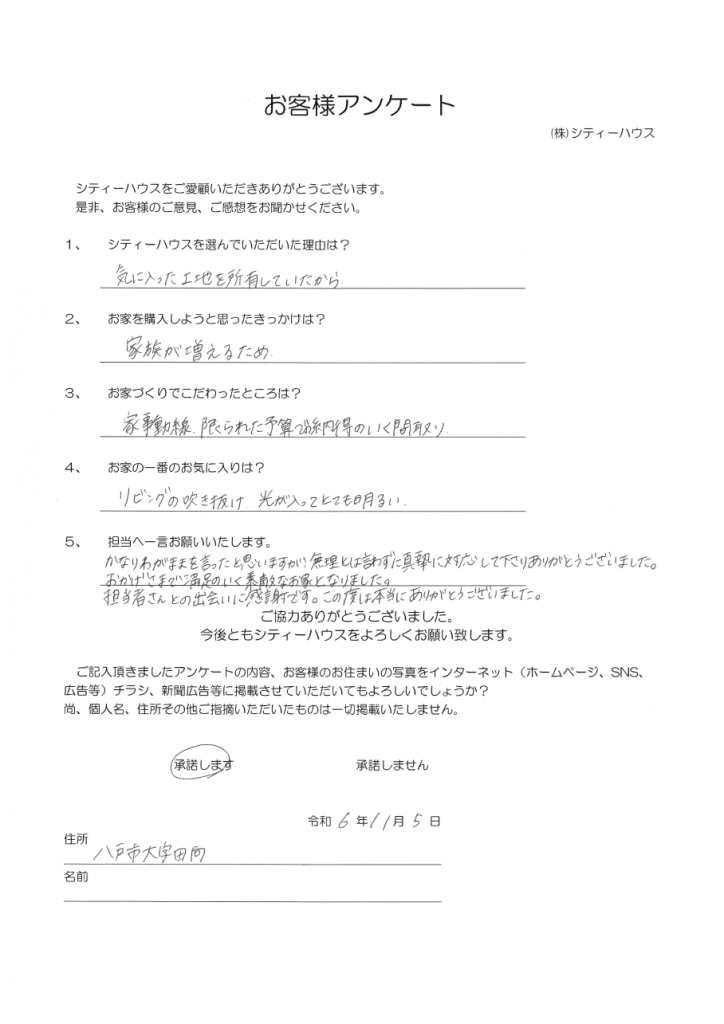 お客様アンケート
(株)シティーハウス
シティーハウスをご愛顧いただきありがとうございます。
是非、お客様のご意見、ご感想をお聞かせください。
1、 シティーハウスを選んでいただいた理由は？
気に入った土地を所有していたから.
2、 お家を購入しようと思ったきっかけは？
家族が増えるため.
3、 お家づくりでこだわったところは？
家事動線、限られた予算で納得のいく間取り.
4、 お家の一番のお気に入りは？
リビングの吹き抜け 光が入ってとても明るい.
5、 担当へ一言お願いいたします。
かなりわがままを言ったと思いますが、無理とは言わずに真摯に対応して下さりありがとうございました。
おかげさまで満足のいく素敵なお家となりました。
担当者さんとの出会いに感謝です。この度は本当にありがとうございました。
ご協力ありがとうございました。
今後ともシティーハウスをよろしくお願い致します。
ご記入頂きましたアンケートの内容、お客様のお住まいの写真をインターネット（ホームページ、SNS、
広告等）チラシ、新聞広告等に掲載させていただいてもよろしいでしょうか？
尚、個人名、住所その他ご指摘いただいたものは一切掲載いたしません。
承諾します 承諾しません
令和 6 年 11 月 5 日
住所
八戸市大字田向
名前